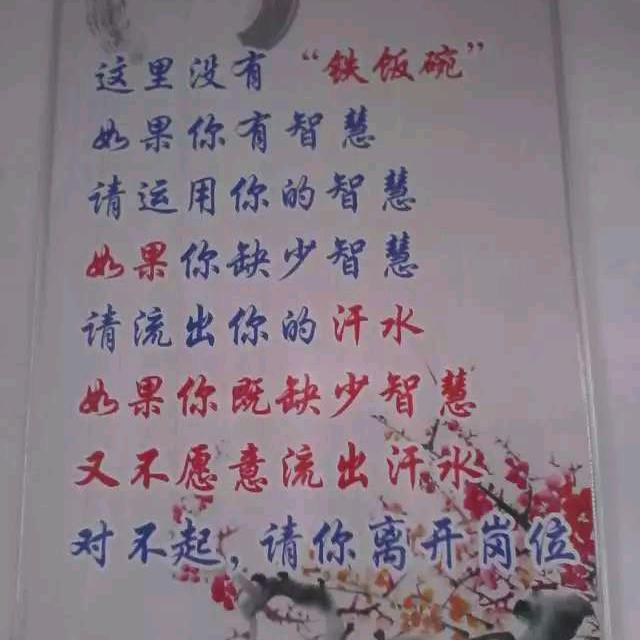 这里没有“铁饭碗”
如果你有智慧
请运用你的智慧
如果你缺少智慧
请流出你的汗水
如果你既缺少智慧
又不愿意流出汗水
对不起,请你离开岗位